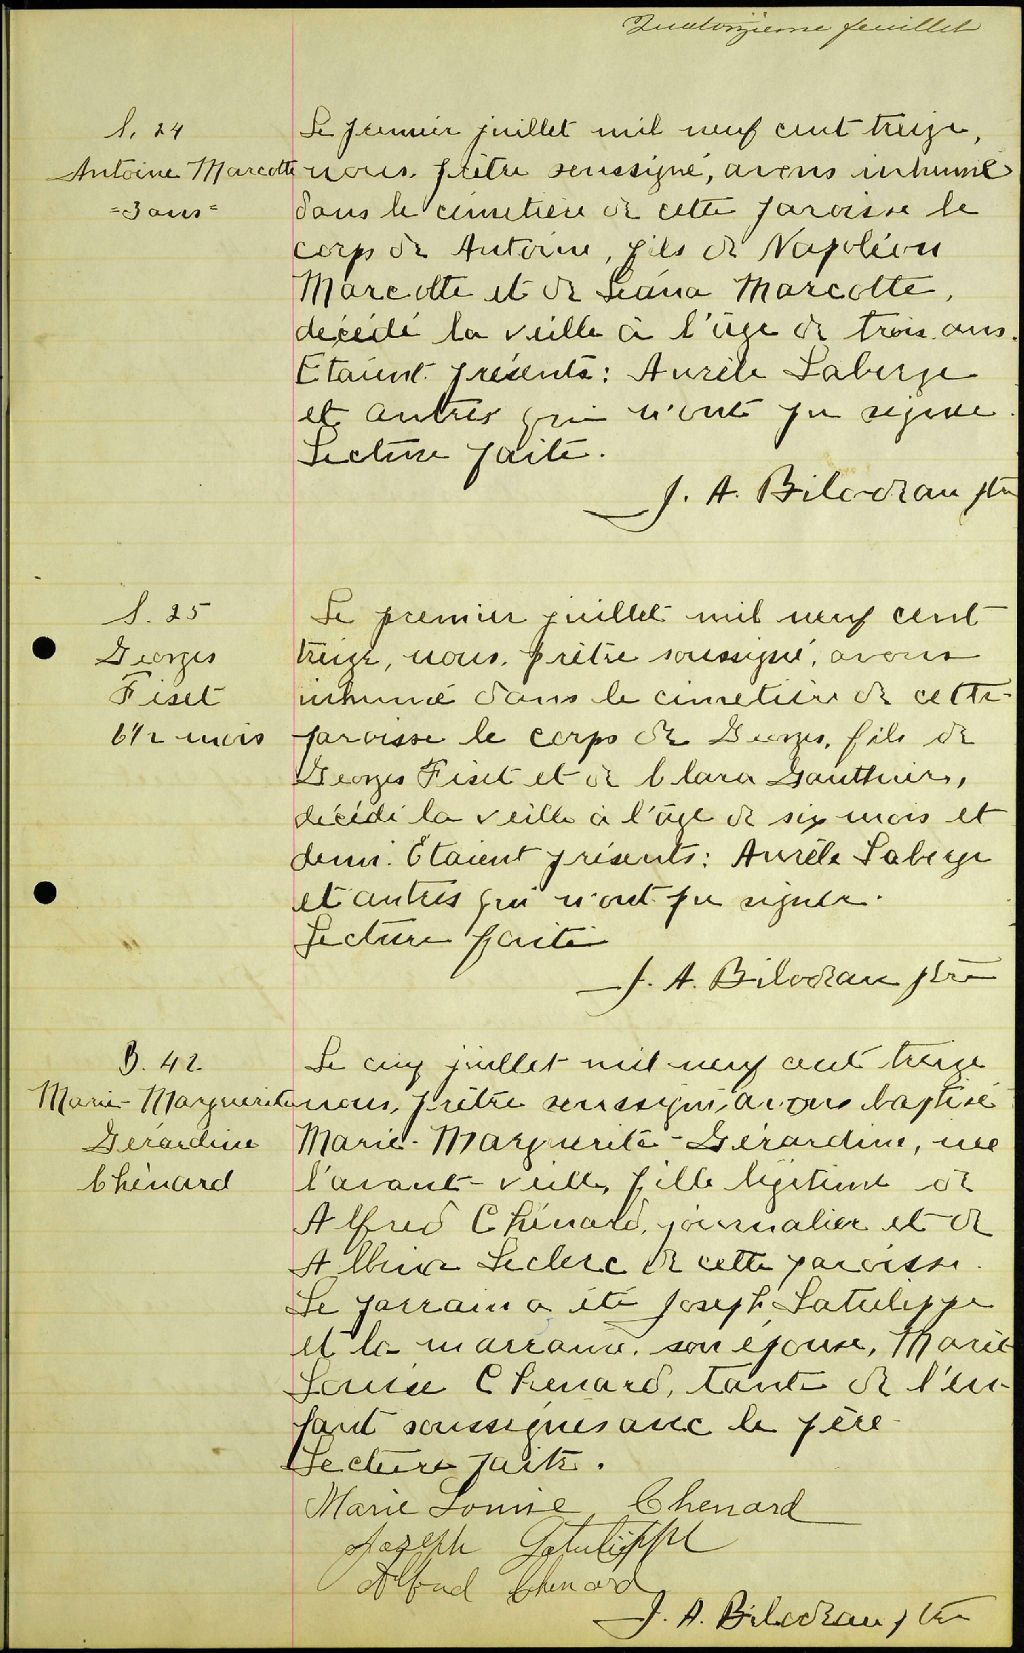 Quatorzième feuillet
S. 24
Antoine Marcotte
=3 ans=
Le premier juillet mil neuf cent treize,
nous, prêtre soussigné, avons inhumé
dans le cimetière de cette paroisse le
corps de Antoine, fils de Napoléon
Marcotte et de Léana Marcotte,
décédé la veille à l'âge de trois ans.
Etaient présents: Aurèle Laberge
et autres qui n'ont pu signer.
Lecture faite.
J. A. Bilodeau ptre
S. 25
Georges
Fiset
6 1/2 mois
Le premier juillet mil neuf cent
treize, nous, prêtre soussigné, avons
inhumé dans le cimetière de cette
paroisse le corps de Georges, fils de
Georges Fiset et de Clara Gauthier,
décédé la veille à l'âge de six mois et
demi. Etaient présents: Aurèle Laberge
et autres qui n'ont pu signer.
Lecture faite
J. A. Bilodeau ptre
B. 42
Marie-Marguerite
Gérardine
Chénard
Le cinq juillet mil neuf cent treize
nous, prêtre soussigné, avons baptisé
Marie-Marguerite-Gérardine, née
l'avant-veille, fille légitime de
Alfred Chénard, journalier et de
Albina Leclerc de cette paroisse.
Le parrain a été Joseph Latulippe
et la marraine, son épouse, Marie
Louise Chenard, tante de l'en-
fant soussignés avec le père.
Lecture faite.
Marie Louise Chenard
Joseph Latulippe
Alfred Chenard
J. A. Bilodeau ptre